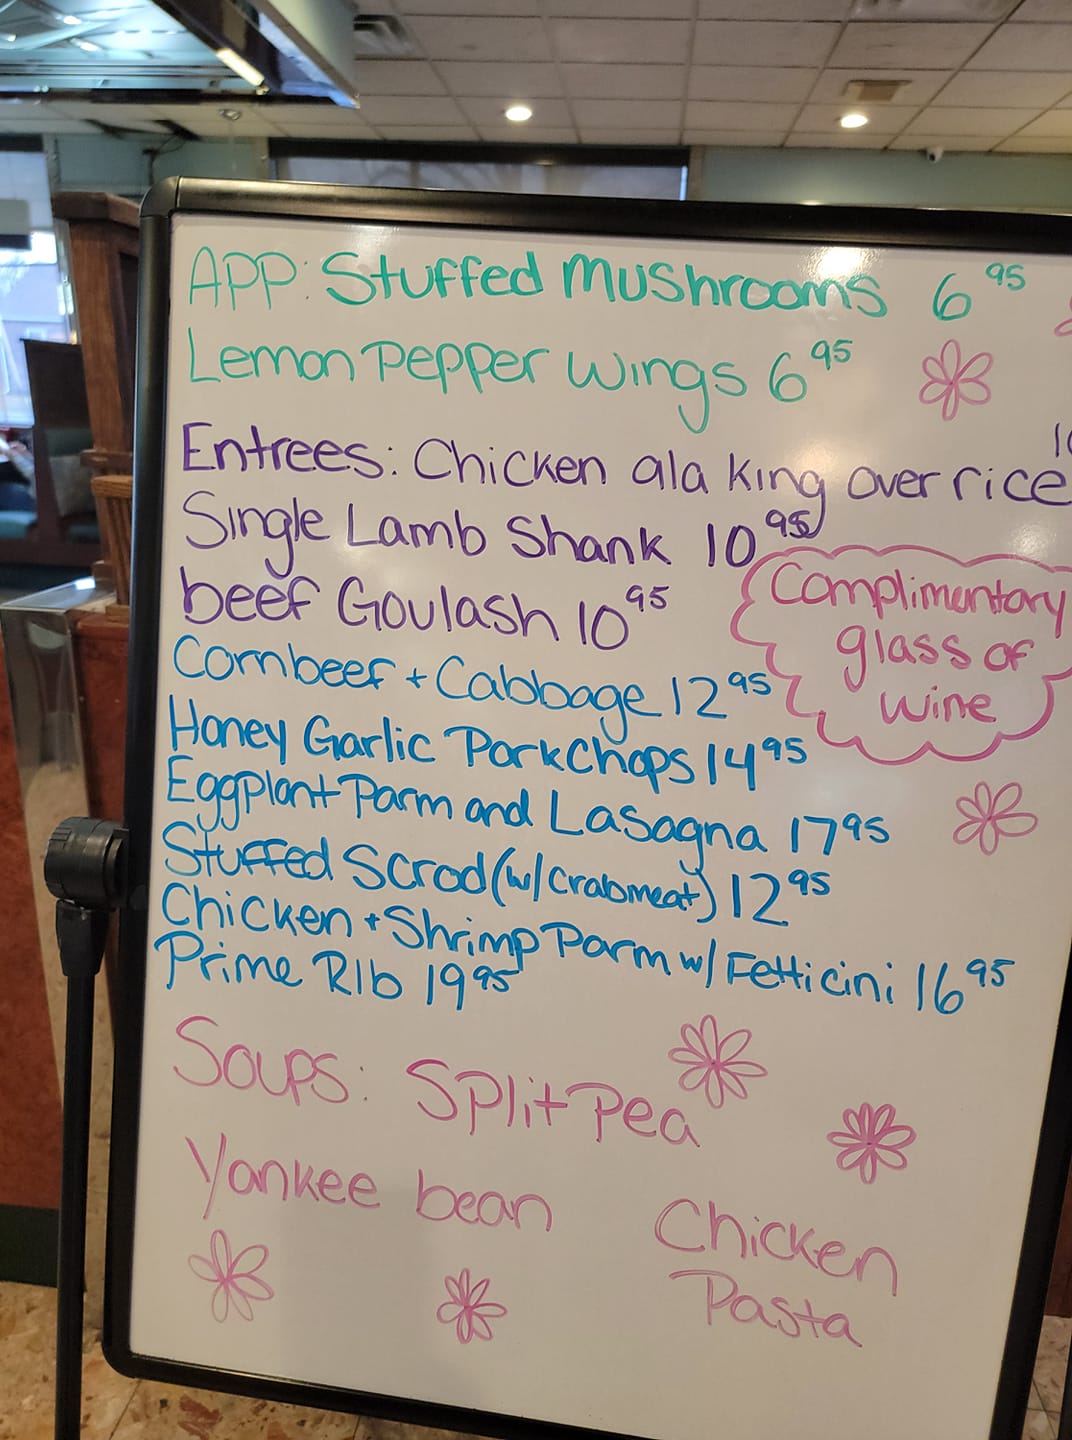 APP: Stuffed Mushrooms 6 95
Lemon Pepper Wings 6 95
Entrees: Chicken ala king over rice
Single Lamb Shank 10 95
beef Goulash 10 95
Complimentary
glass of
wine
Cornbeef + Cabbage 12 95
Honey Garlic PorkChops 14 95
Eggplant Parm and Lasagna 17 95
Stuffed Scrod (w/ Crabmeat) 12 95
Chicken + Shrimp Parm w/ Fetticini 16 95
Prime RIb 19 95
Soups: Split Pea
Yankee bean
Chicken
Pasta